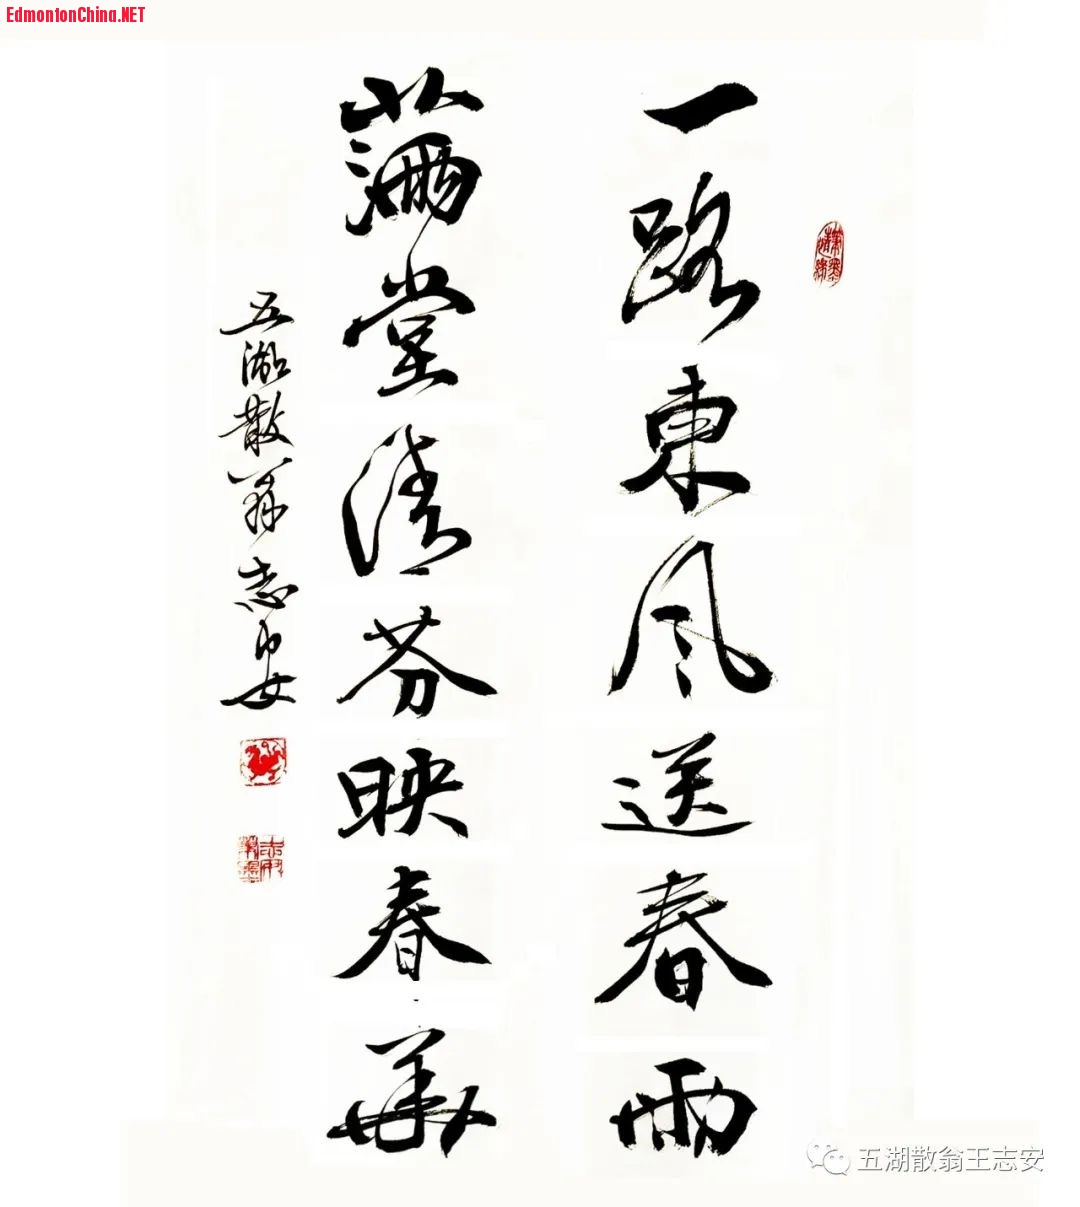 EdmontonChina.NET
一路東風送春雨
滿堂清芬映春華
五湖散翁志安
五湖散翁王志安